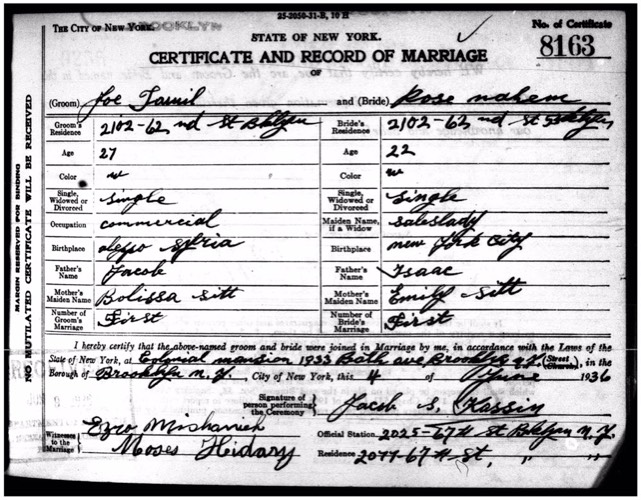 25-2050-31-B, 10 H
BROOKLYN
THE CITY OF NEW YORK.
STATE OF NEW YORK.
No. of Certificate
CERTIFICATE AND RECORD OF MARRIAGE
8163
OF
(Groom) Joe Tawil and (Bride) Rose nahem
Groom's Residence 2102-62 nd St Bklyn Bride's Residence 2102-62 nd St Bklyn
Age 27 Age 22
Color w Color w
Single, Widowed or Divorced single Single, Widowed or Divorced single
Occupation commercial Maiden Name, if a Widow saleslady
Birthplace aleppo syria Birthplace new York City
Father's Name Jacob Father's Name Isaac
Mother's Maiden Name Bolissa sitt Mother's Maiden Name Emily sitt
Number of Groom's Marriage First Number of Bride's Marriage First
I hereby certify that the above-named groom and bride were joined in Marriage by me, in accordance with the Laws of the
State of New York, at Colonial mansion 1933 Bath ave Brooklyn N.Y. (Street Church), in the
Borough of Brooklyn N.Y., City of New York, this 4 of June 1936
Signature of person performing the Ceremony Jacob S. Kassin
Witnesses to the Marriage Ezro
Moses Hidary
Official Station 2025-67th St Bklyn N.Y.
Residence 2077-67th St, " "
MARGIN RESERVED FOR BINDING
NO MUTILATED CERTIFICATE WILL BE RECEIVED